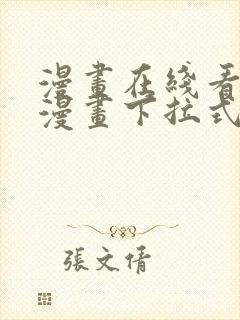 漫畫在綫看
漫畫下拉式
張文倩